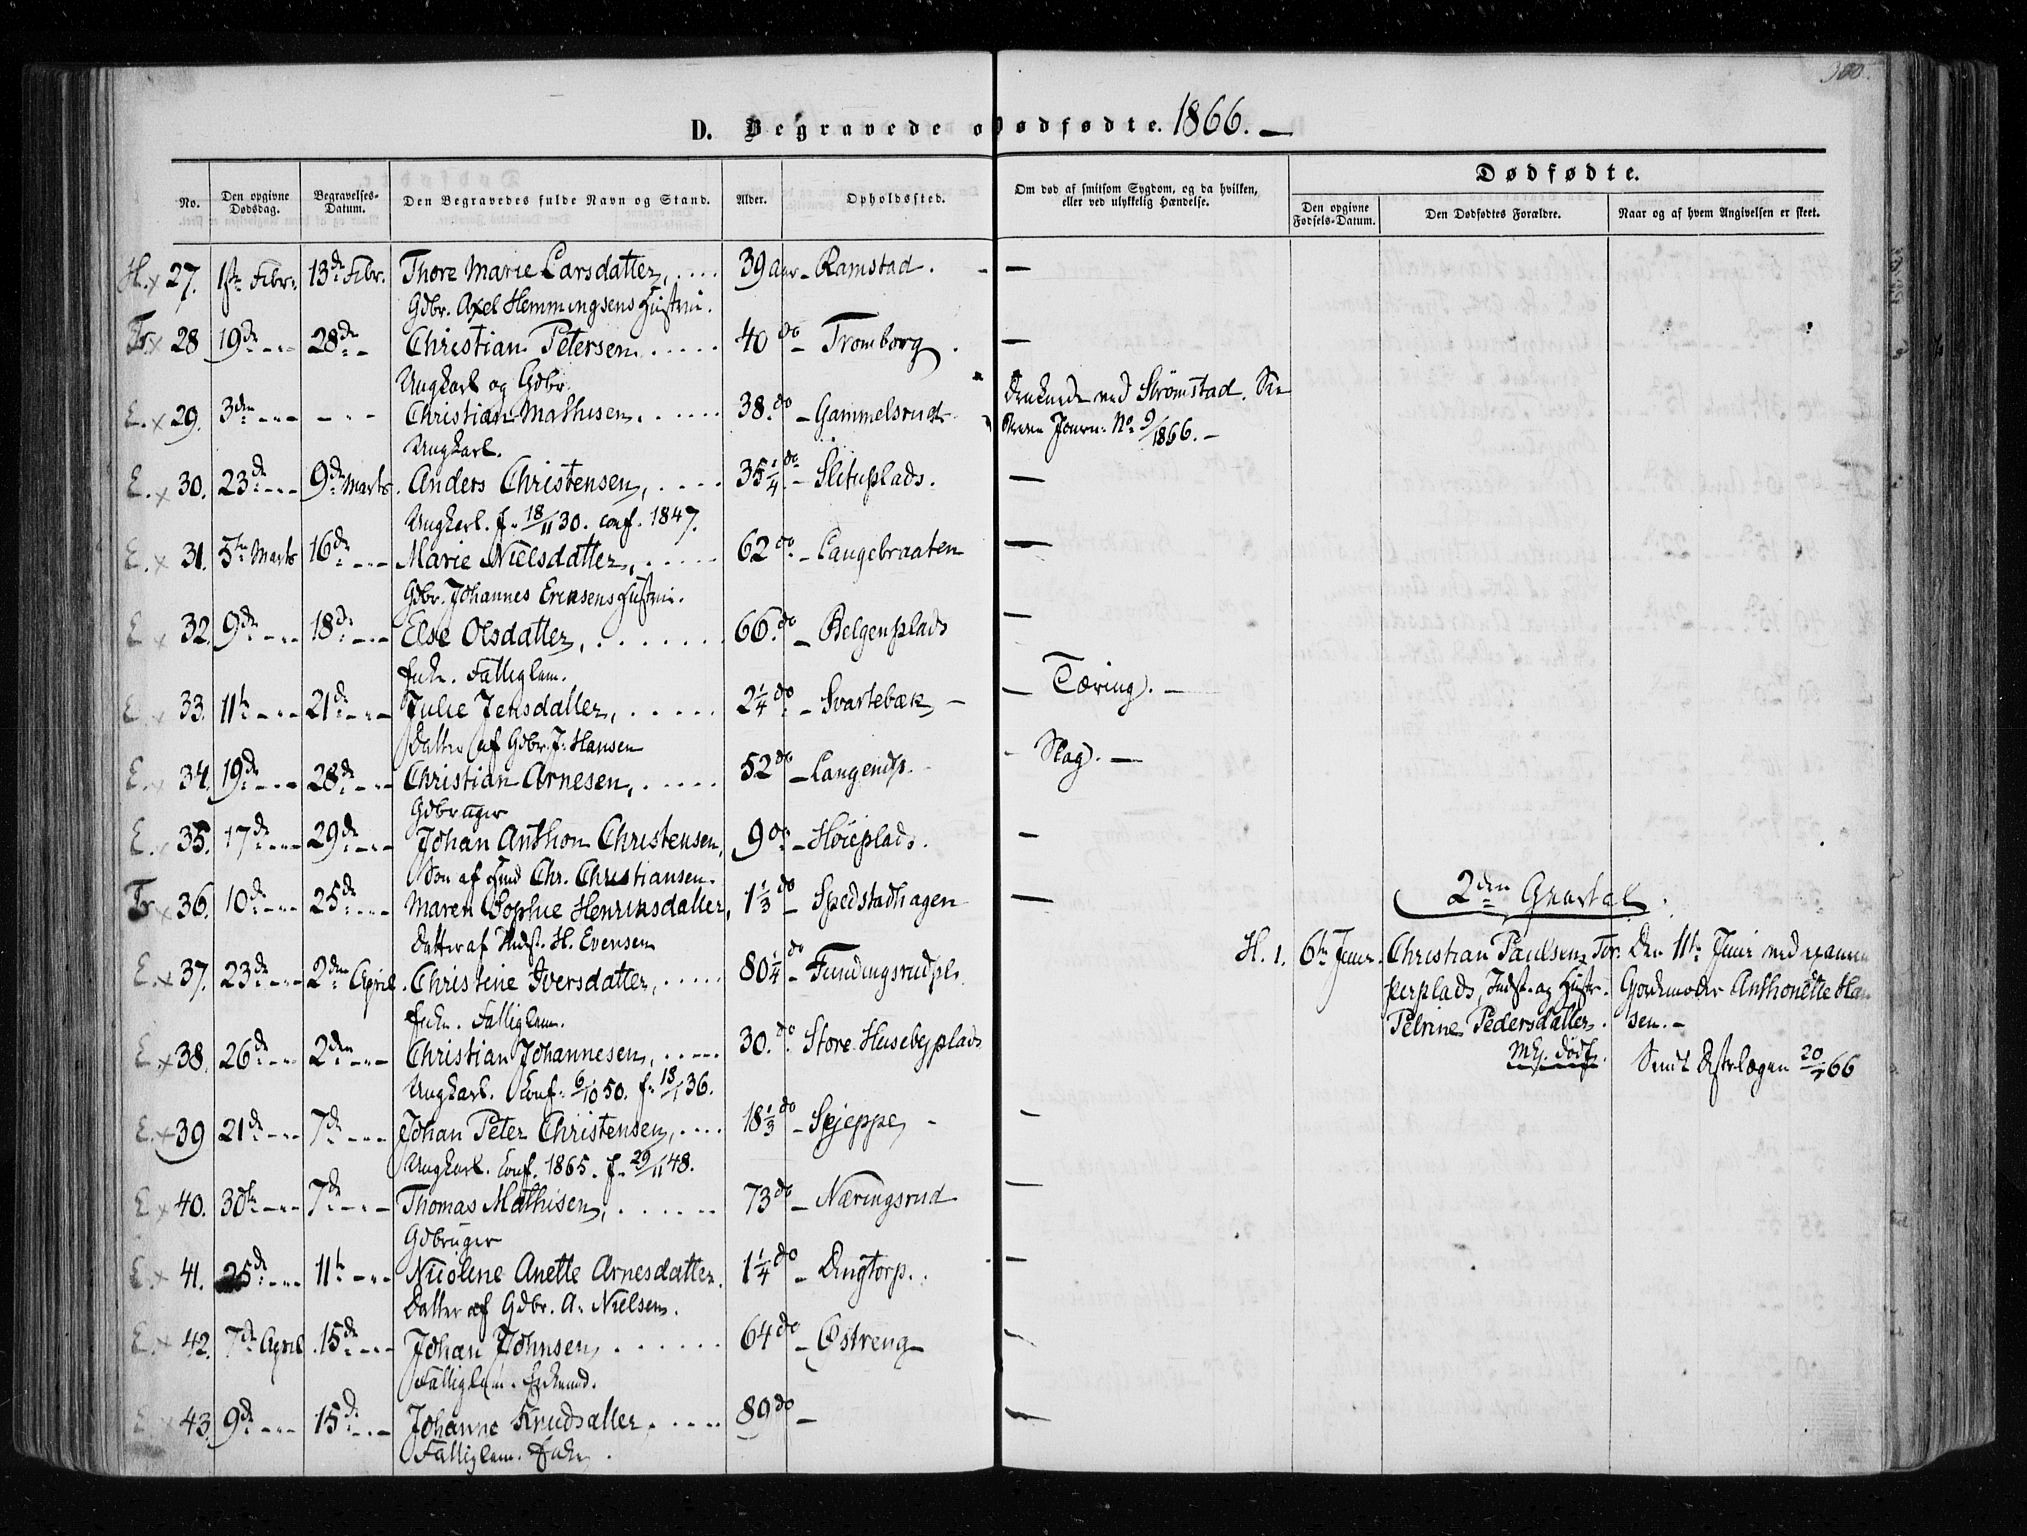 380.
D. Begravede o Dødfødte. 1866. —
No. Den opgivne Dødsdag. Begravelses-Datum. Den Begravedes fulde Navn og Stand. Alder. Opholdssted. Om død af smitsom Sygdom, og da hvilken, eller ved ulykkelig Hændelse. Dødfødte. Den opgivne Fødsels-Datum. Den Dødfødtes Forældre. Naar og af hvem Angivelsen er skeet.
H. x 27. 1ste Febr. 13de Febr. Thore Marie Larsdatter, .... 39 Aar - Ramstad. —
Gdbr. Axel Hemmingsens Hustru.
Tr x 28 19de --- 28de -- Christian Petersen ..... 40 do - Tromborg. —
Ungkarl og Gdbr.
E. x 29. 3den --- - -- Christian Mathisen. ..... 38. do - Gammelsrud - ved Strømstad. Se
Journ: No 9/1866. —
Ungkarl.
E. x 30. 23de --- 9de Marts. Anders Christensen, .... 35 1/4 do - Slituplads. —
Ungkarl. f. 18/11 30. conf. 1847.
E. x 31. 5te Marts 16de --- Marie Nielsdatter, .... 62 do - Langebraaten —
Gdbr. Johannes Ericksens Hustru.
E x 32. 9de --- 18de --- Else Olsdatter, ....... 66. do - Helgenplads —
Enke. Fattiglem.
E x 33. 11te --- 21de --- Julie Jensdatter, ..... 2 1/4 do - Svartebæk, — — Tæring. —
Datter af Gdbr. J. Hansen
E. x 34. 19de --- 28de --- Christian Arnesen, ..... 52 do - Langendp. - Slag. —
Gdbruger
E. x 35. 17de --- 29de --- Johan Anthon Christensen, 9 do - Høieplads. —
Søn af Chr. Christiansen.
Tr x 36. 10de --- 25de --- Maren Sophie Henriksdatter, 1 1/3 do - Spedstadhagen —
Datter af Indst. H. Evensen
2den Qvartal.
E x 37. 23de --- 2den April. Christine Iversdatter, .... 80 1/4 do - Fundingsrudpl.
Enke. Fattiglem.
H. 1. 6te Juni. Christian Paulsen, Tor- Den 11te Juni ved
perplads, Indst. og Hustr. Gjordemoder Anthonette Han
Petrine Pedersdatter. sen. —
mkj. dødf. Sendt Distrlægen 20/7 66
E. x 38. 26de --- 2den --- Christian Johannesen, ..... 30. do. Store Husebyplads
Ungkarl. Conf. 6/10 50. f. 18/1 36.
E. x 39 21de --- 7de --- Johan Peter Christensen, .... 18 1/3 do - Sjeppe, - —
Ungkarl. Conf. 1865. f. 29/11 48.
E. x 40. 30te --- 7de --- Thomas Mathisen, ...... 73 do - Næringsrud —
Gdbruger
E. x 41. 25de --- 11te --- Nicoline Anette Arnesdatter. 1 1/4 do - Dingtorp. —
Datter af Gdbr. A. Nielsen.
E. x 42. 7de April. 15de --- Johan Johnsen, ...... 64 do - Østreng —
Fattiglem. Enkemd.
E x 43. 9de --- 15de --- Johanne Knudsdatter. ..... 89 do - —
Fattiglem. Enke.